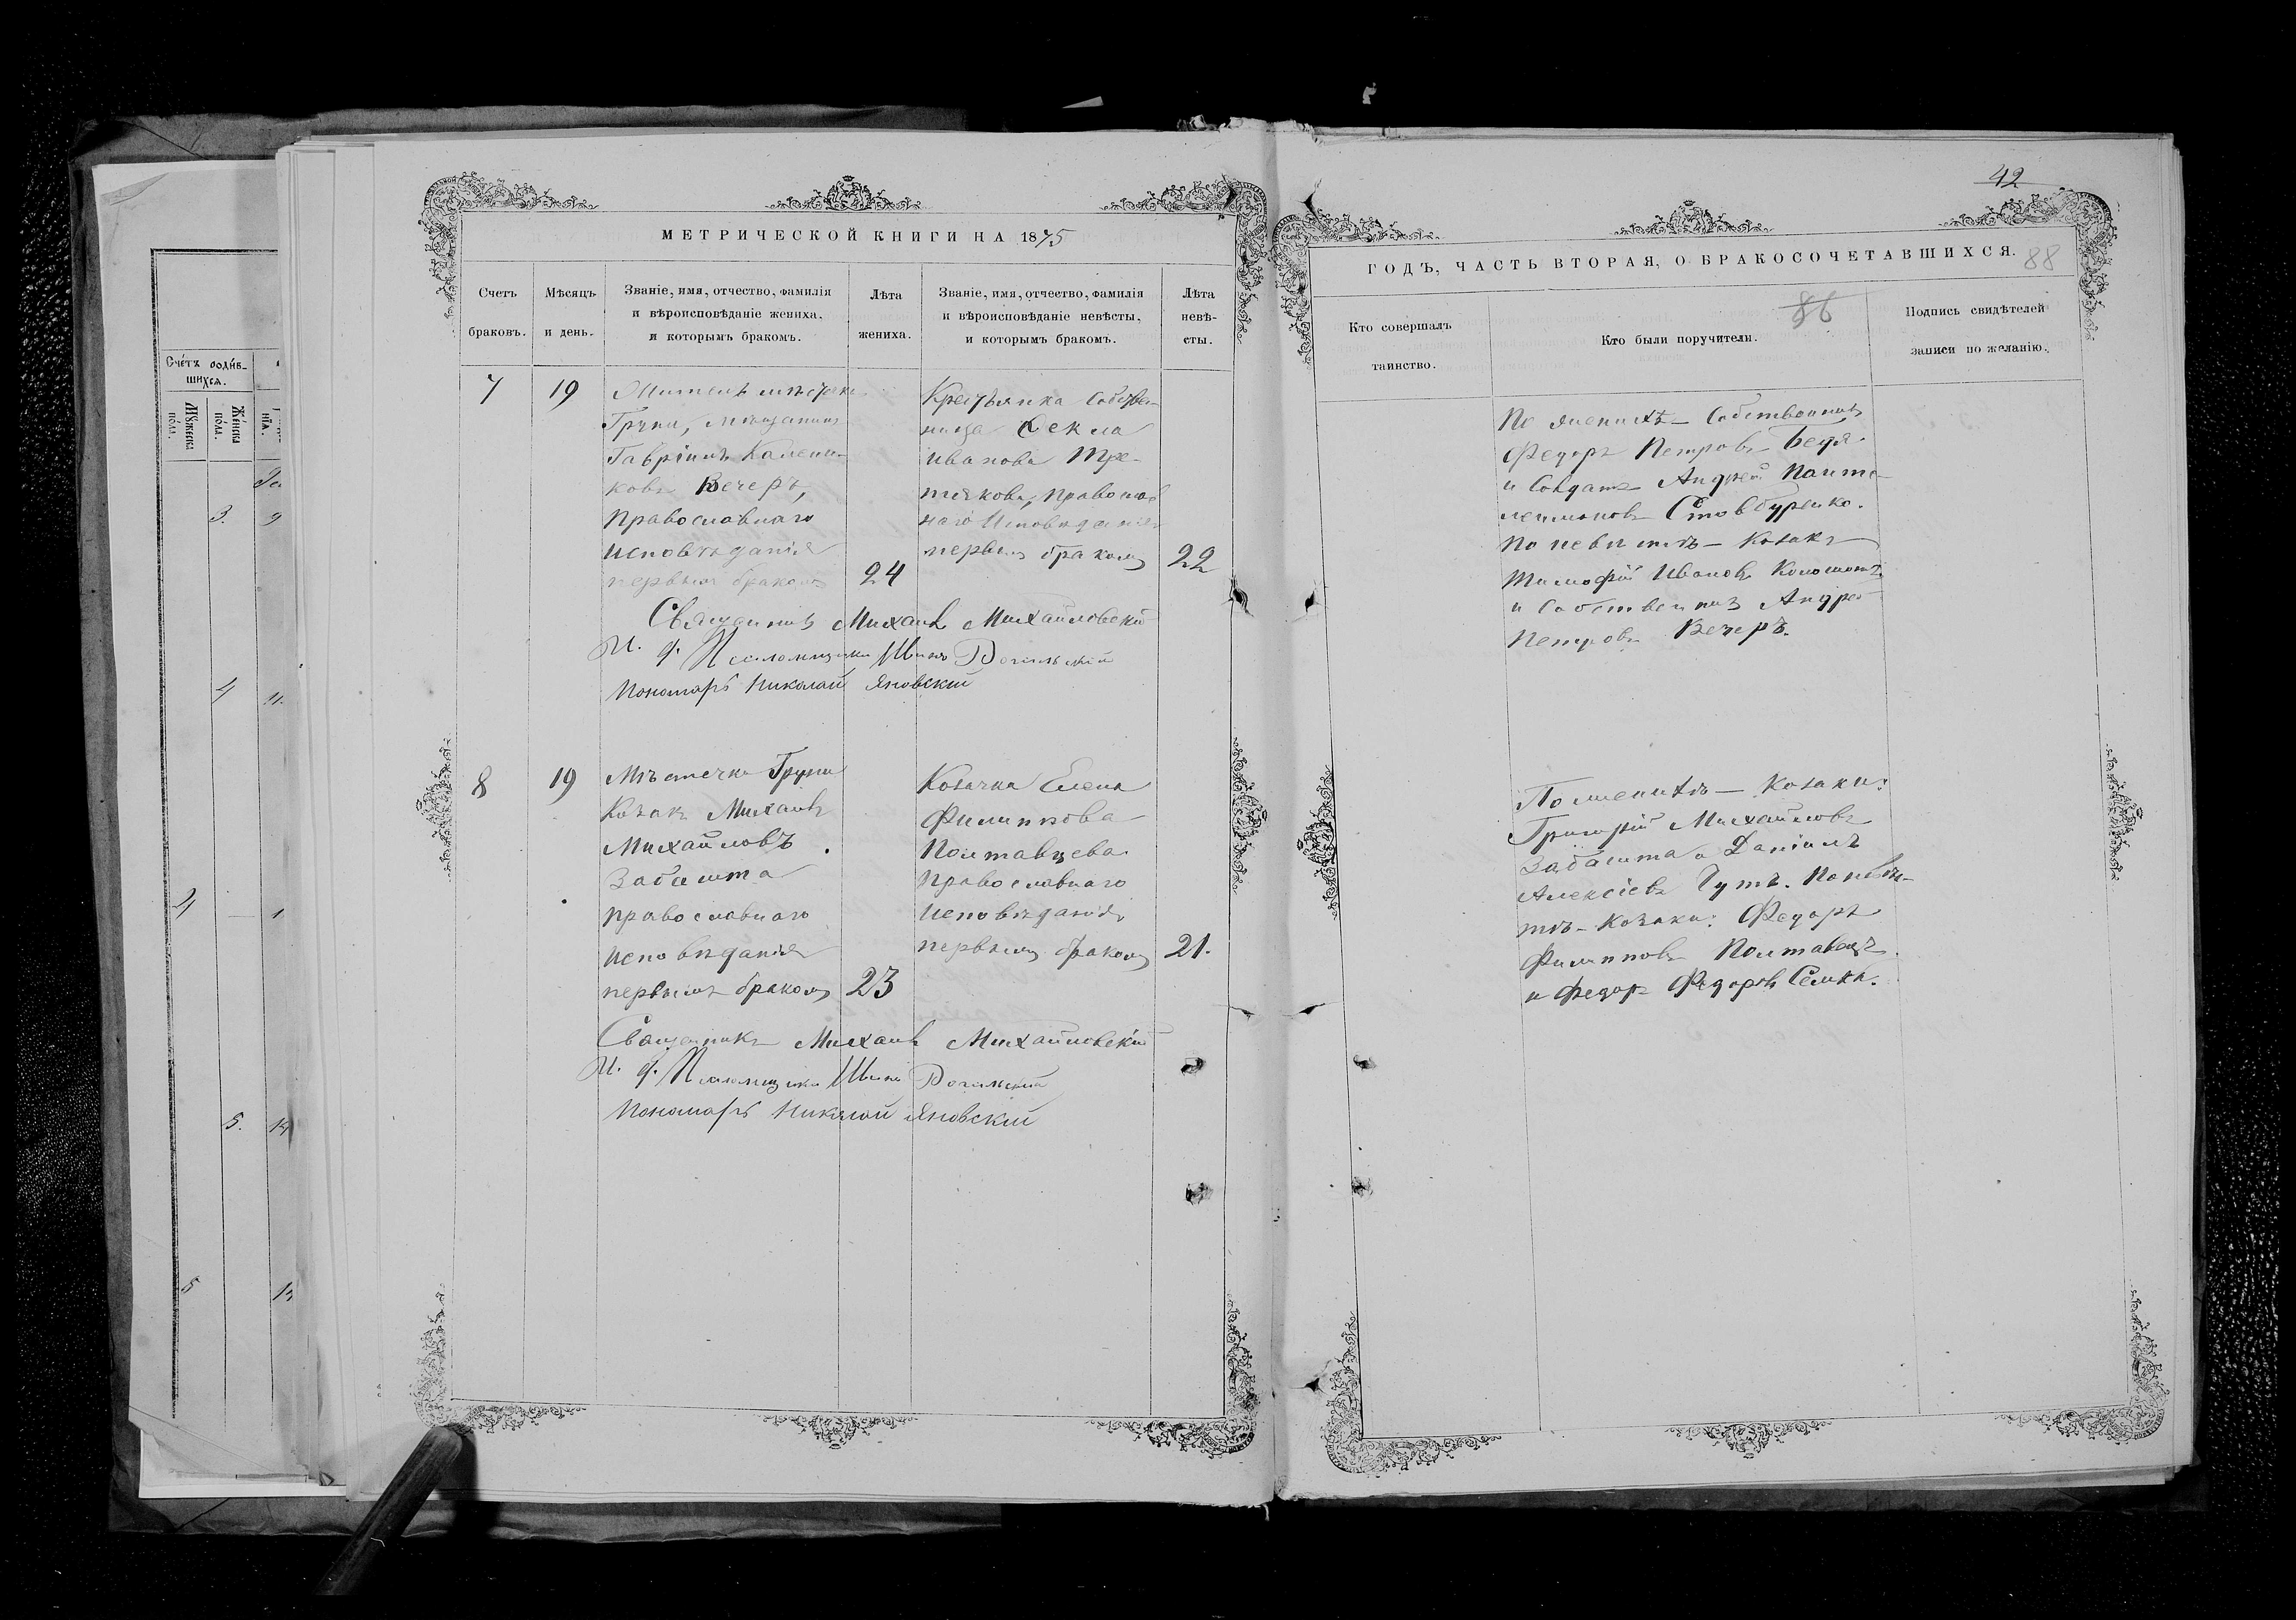 МЕТРИЧЕСКОЙ КНИГИ НА 1875
Счетъ браковъ.
Мѣсяцъ и день.
Званіе, имя, отчество, фамилія
и вѣроисповѣданіе жениха,
и которымъ бракомъ.
Лѣта
жениха.
Званіе, имя, отчество, фамилія
и вѣроисповѣданіе невѣсты,
и которымъ бракомъ.
Лѣта
невѣ-
сты.
7
19
Груни, мѣщанинъ
Гавріилъ Калени-
ковъ Вечеръ,
Православнаго
исповѣданія
первымъ бракомъ
24
Крестьянка Собствен-
ница Ѳекла
Иванова Тре-
тякова, православ
наго Исповѣданія
первымъ бракомъ
22
Священникъ Михаилъ Михайловскій
И. д. Псаломщика
Пономарь Николай Яновскій
8
19
Мѣстечка Груни
Козакъ Михаилъ
Михайловъ
Забашта
православнаго
исповѣданія
первымъ бракомъ
23
Козачка Елена
Филиппова
Полтавцева
Православнаго
исповѣданія
первымъ бракомъ
21.
Священникъ Михаилъ Михайловскій
И. д. Псаломщика
Пономарь Николай Яновскій
42
ГОДЪ, ЧАСТЬ ВТОРАЯ, О БРАКОСОЧЕТАВШИХСЯ.
88
86
Кто совершалъ
таинство.
Кто были поручители.
Подпись свидѣтелей
записи по желанію.
По женихѣ — Собственникъ
Федоръ Петровъ
и Солдатъ Андрей Панте-
леимоновъ Стовбуренко.
По невѣстѣ — Козакъ
Тимофій Ивановъ
и Собственникъ Андрей
Петровъ Вечеръ.
По женихѣ — Козаки:
Григорій Михайловъ
Забашта и Даніилъ
Алексіевъ Гутъ. По невѣс-
тѣ — Козаки: Федоръ
Филипповъ Полтавецъ
и Федоръ Федоровъ
Счетъ родив-
шихся.
Мужеска
пола.
Женска
пола.
3.
9
4
11.
4
1
5.
14
5